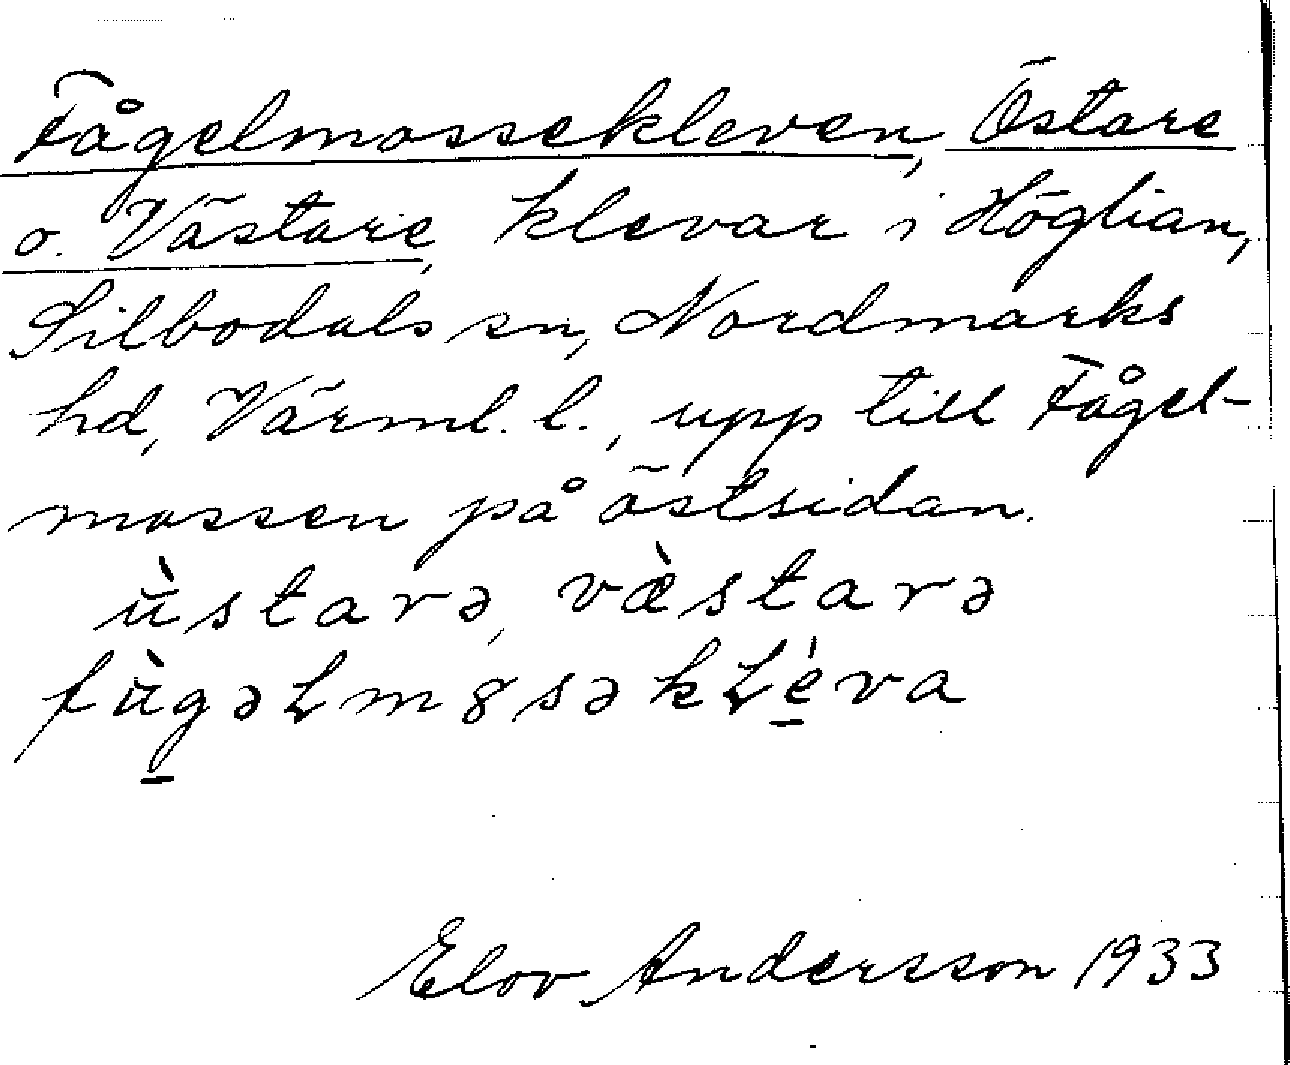 Fågelmossekleven, Östare
o. Västare, klevar i Höglian,
Silbodals sn, Nordmarks
hd, Värml. l., upp till Fågel-
mossen på östsidan.
ùstarə, væ̀starə
fùgəLm8səkLe̠̍va
Elov Andersson 1933